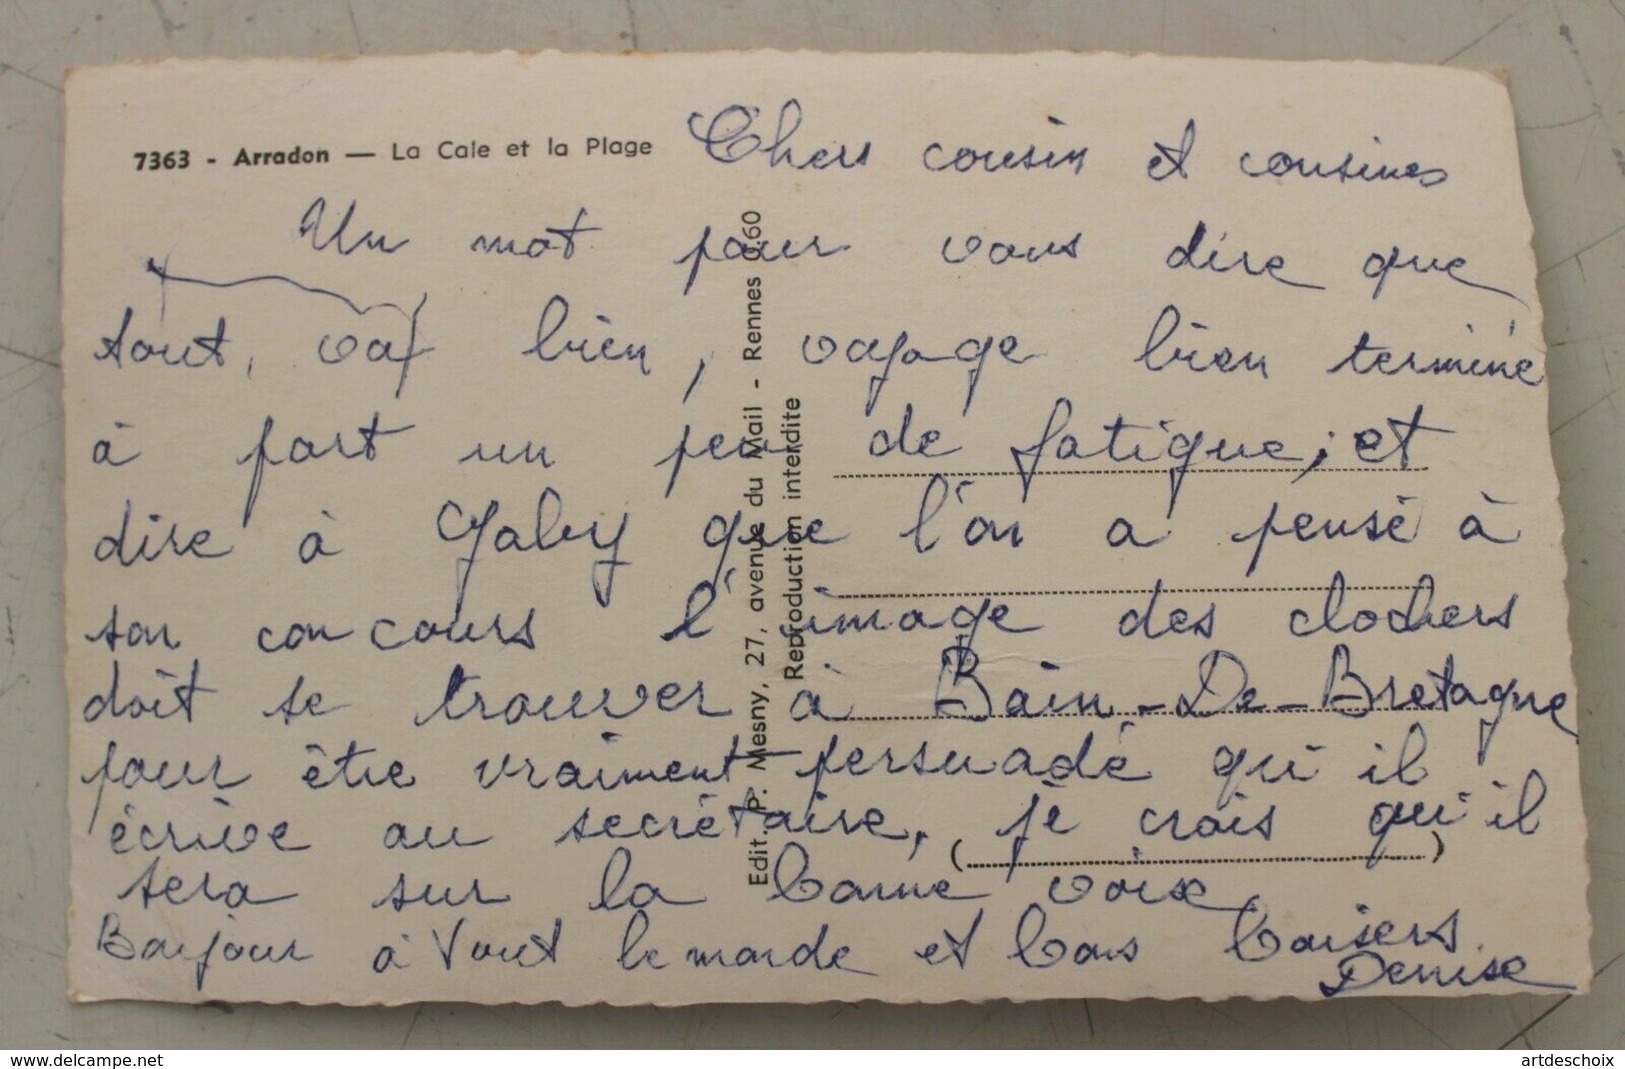 7363 - Arradon — La Cale et la Plage
Chers cousin et cousines
Un mot pour vous dire que
tout, va bien, voyage bien terminé
à part un peu de fatigue, et
dire à Gaby que l'on a pensé à
son concours l'image des clochers
doit se trouver à Bain-De-Bretagne
pour être vraiment persuadé qu'il
écrive au secrétaire, je crois qu'il
sera sur la bonne voix
Bonjour à tout le monde et bons baisers.
Denise
Edit. P. Mesny, 27, avenue du Mail - Rennes 0.60
Reproduction interdite
www.delcampe.net
artdeschoix